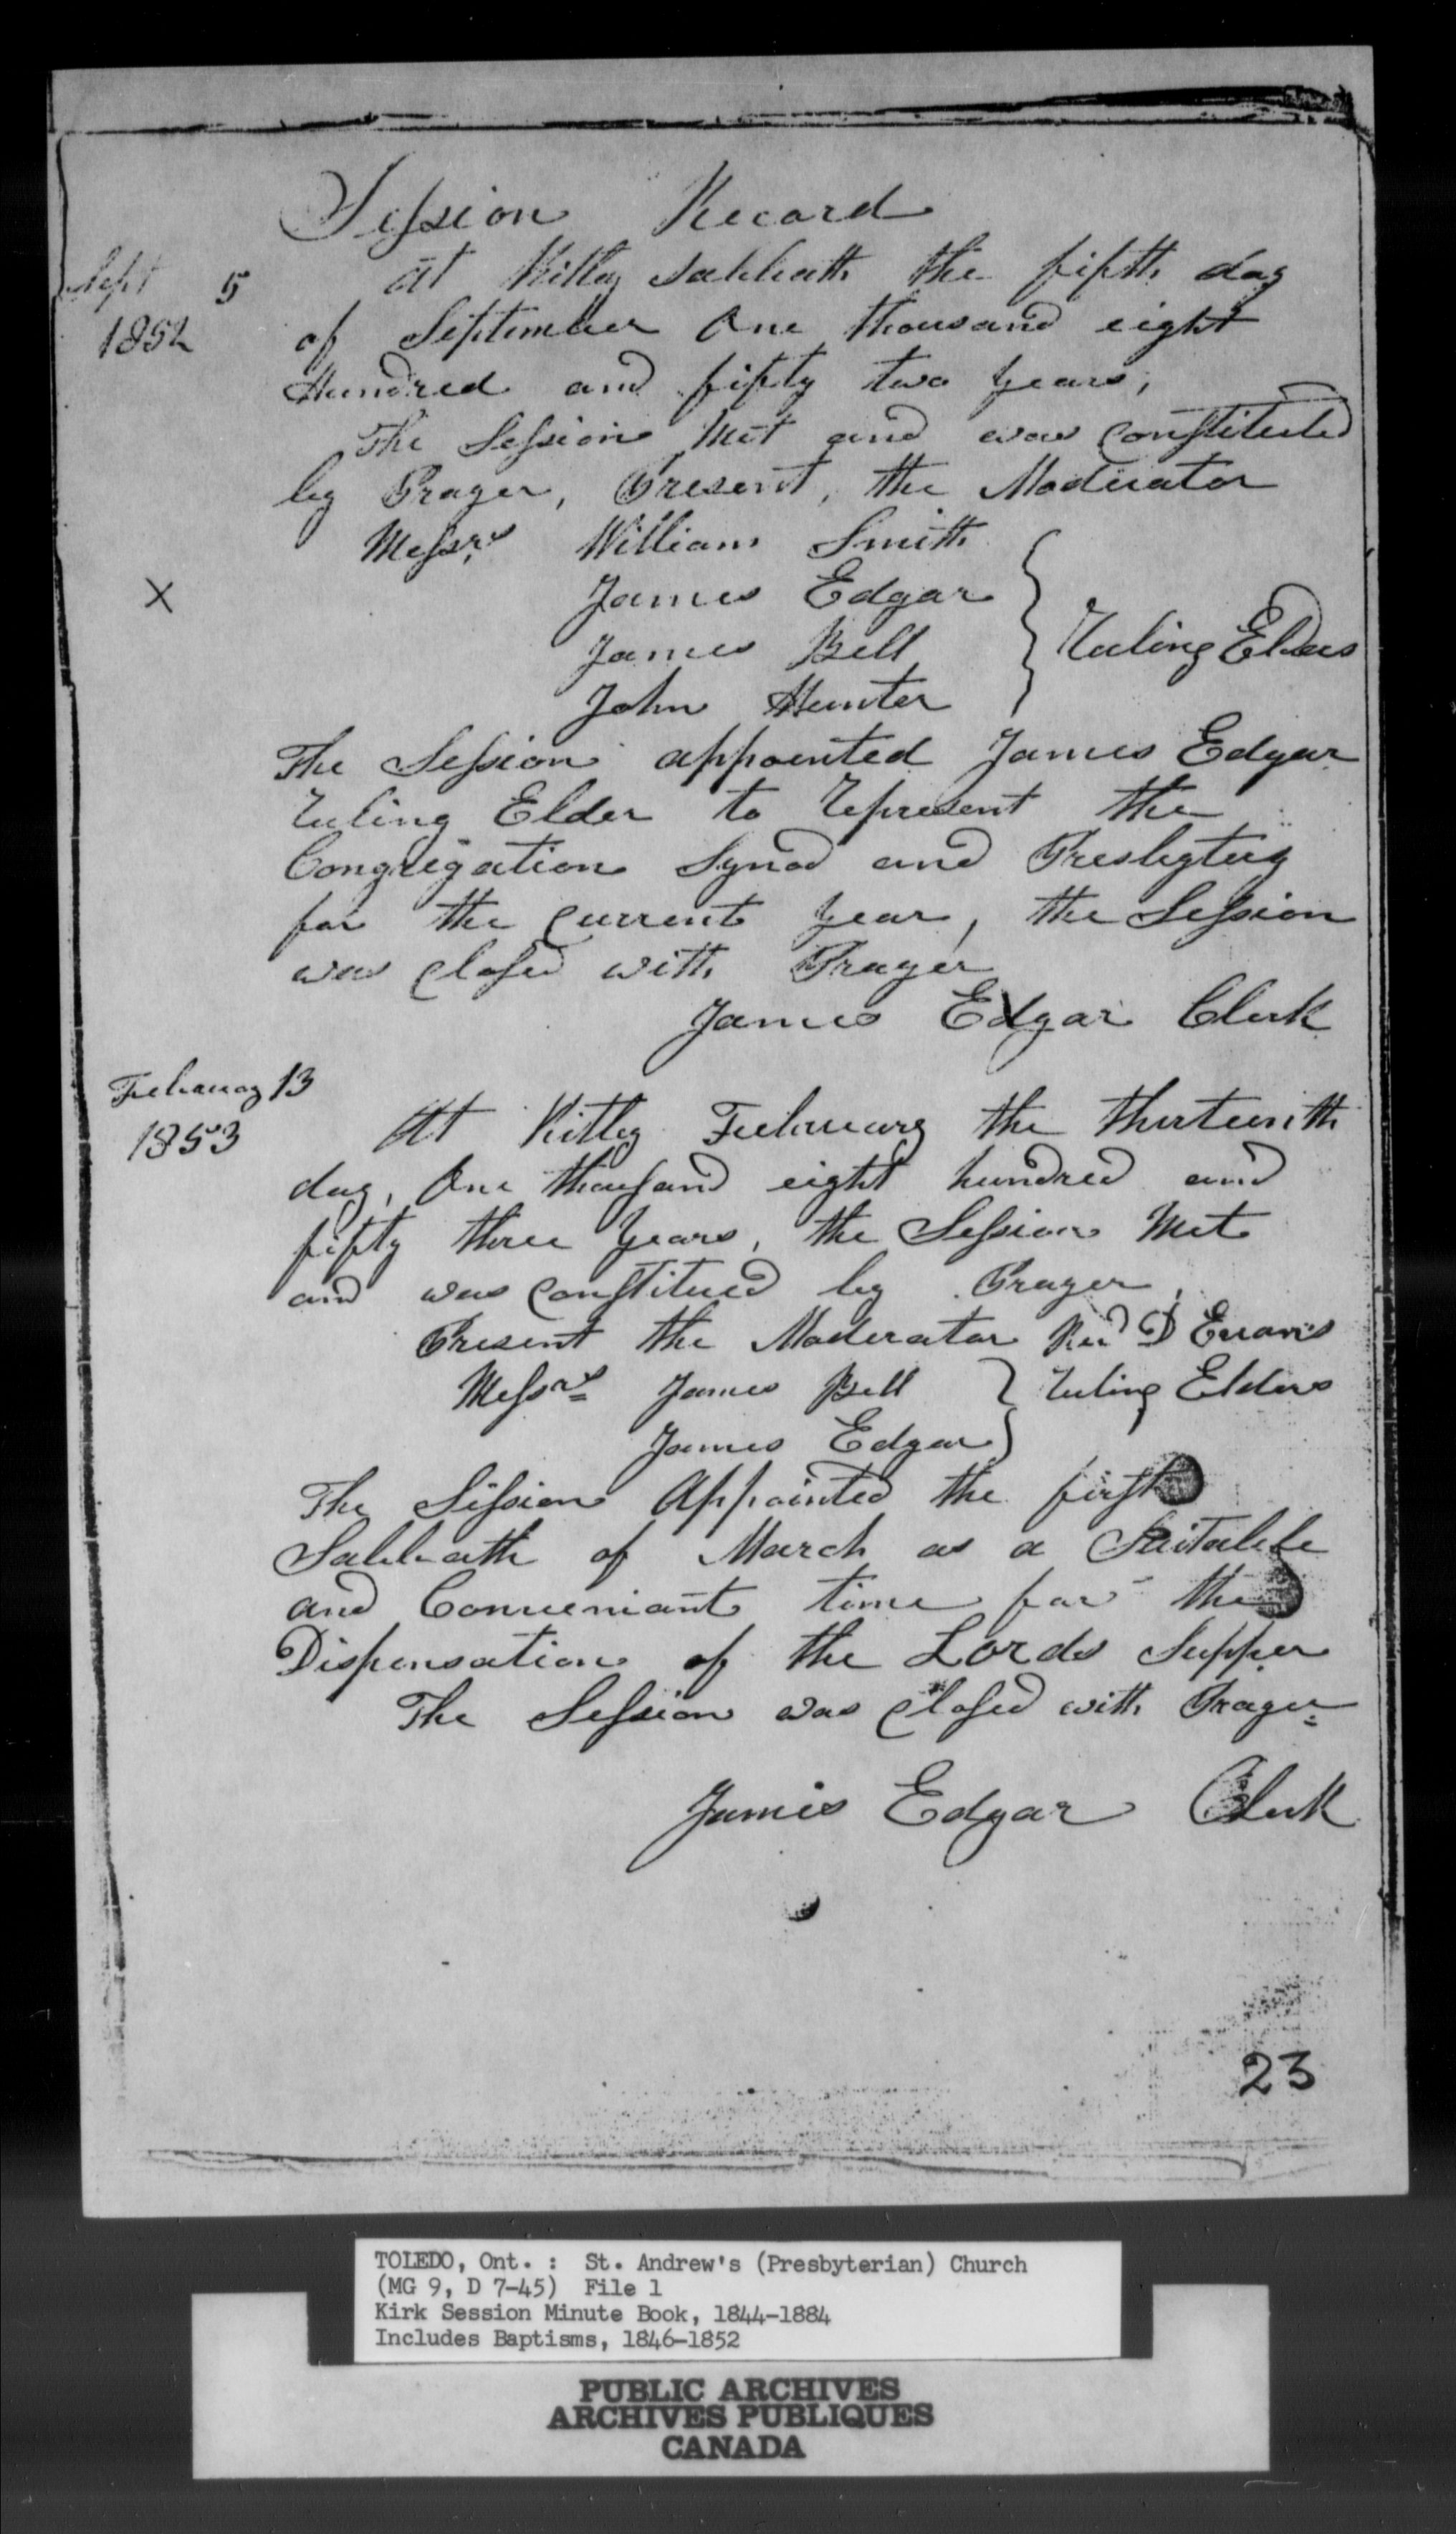 Session Record
Sept 5 At Kitley Sabbath the fifth day
1852 of September One thousand eight
Hundred and fifty two years,
The Session Met and was Constituted
by Prayer, Present, the Moderator
Messrs William Smith
X James Edgar
James Bell Ruling Elders
John Hunter
The Session appointed James Edgar
ruling Elder to represent the
Congregation Synod and Presbytery
for the Current year, the Session
was Closed with Prayer
James Edgar Clerk
February 13
1853 At Kitley February the thirteenth
day, One thousand eight hundred and
fifty three years, the Session Met
and was Constitued by Prayer,
Present the Moderator Revd D Evans
Messrs James Bell ruling Elders
James Edgar
The Session Appointed the first
Sabbath of March as a Suitable
and Conveniant time for the
Dispensation of the Lords Supper
The Session was Closed with Prayer
James Edgar Clerk
23
TOLEDO, Ont. : St. Andrew's (Presbyterian) Church
(MG 9, D 7-45) File 1
Kirk Session Minute Book, 1844-1884
Includes Baptisms, 1846-1852
PUBLIC ARCHIVES
ARCHIVES PUBLIQUES
CANADA